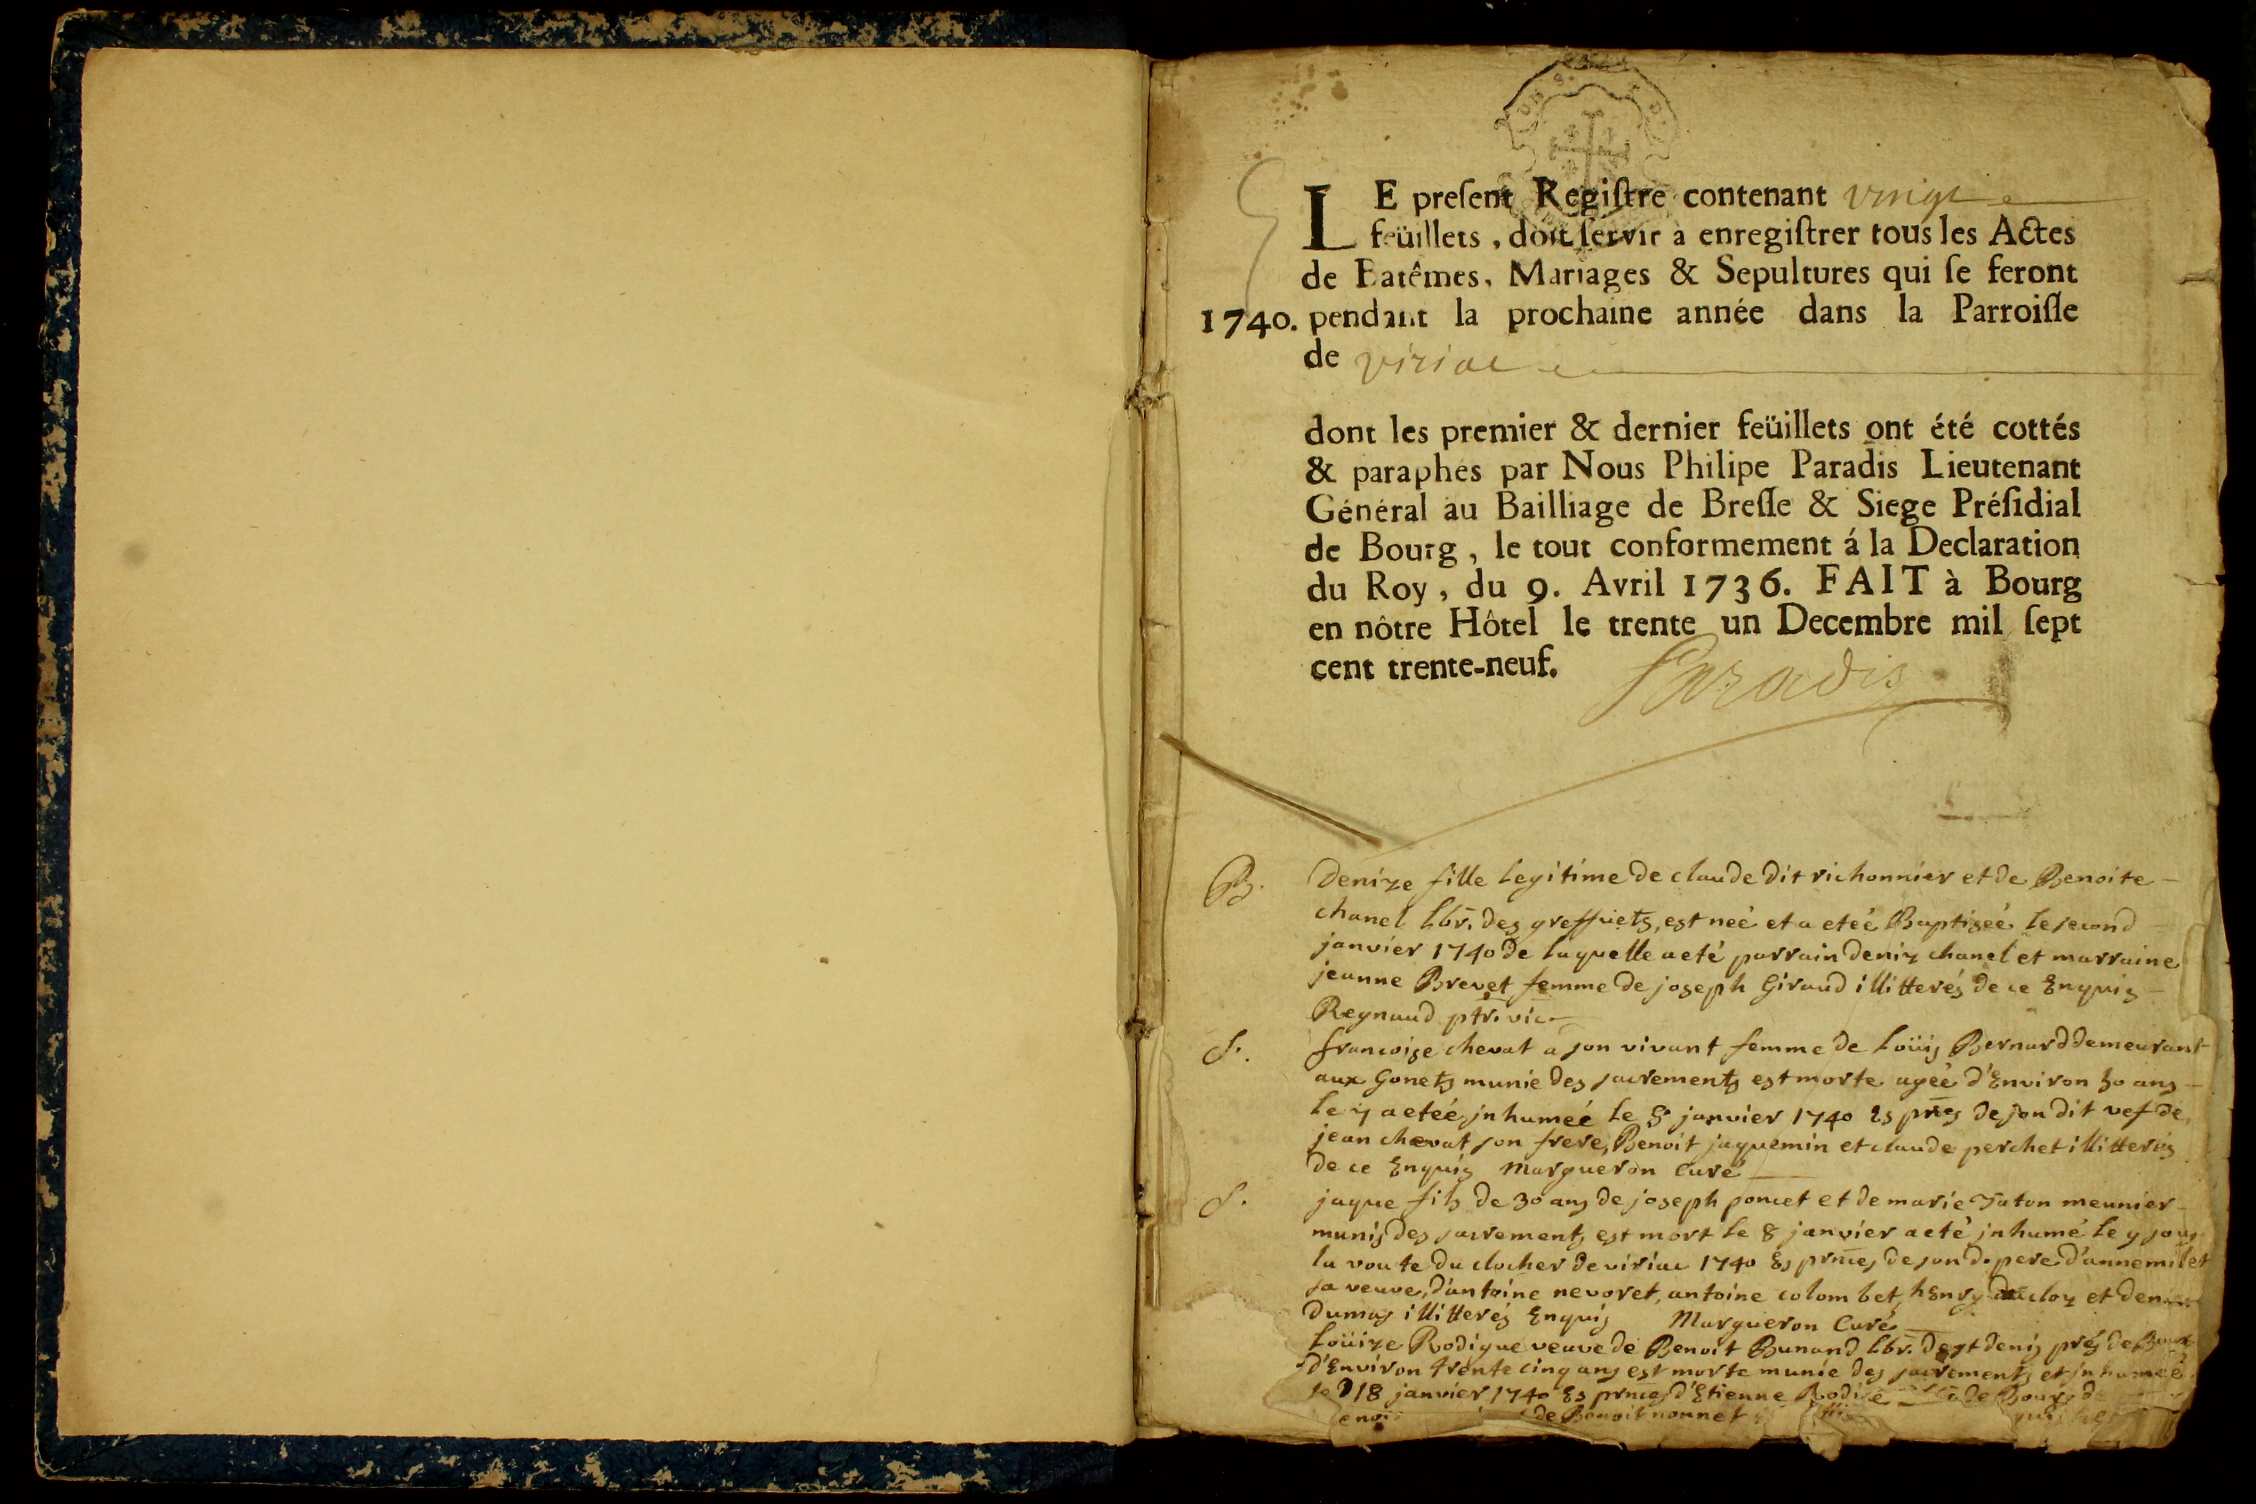 LE preſent Regiſtre contenant vingt
feüillets, doit ſervir à enregiſtrer tous les Actes
de Batêmes, Mariages & Sepultures qui ſe feront
1740. pendant la prochaine année dans la Parroiſſe
de viriac
dont les premier & dernier feüillets ont été cottés
& paraphés par Nous Philipe Paradis Lieutenant
Général au Bailliage de Breſſe & Siege Préſidial
de Bourg, le tout conformement á la Declaration
du Roy, du 9. Avril 1736. FAIT à Bourg
en nôtre Hôtel le trente un Decembre mil ſept
cent trente-neuf.
Paradis
B. Denize fille legitime de claude dit richonnier et de Benoite
chanel lbr. des greffiets, est neé et a eteé Baptiseé le second
janvier 1740 de laquelle a eté parrain deniz chanel et marraine
jeanne Brevet femme de joseph Giraud illitterés de ce Enquis
Reynaud ptr. vic.
S. francoise chevat a son vivant femme de Loüis Bernard demeurant
aux Gonets munie des sacrements est morte ageé d'Environ 50 ans
le 4 a eteé jnhumeé le 5 janvier 1740 Es pnces de son dit vef de
jean chevat son frere, Benoit jaquemin et claude perchet illitterés
de ce Enquis Margueron Curé
S. jaque fils de 30 ans de joseph poncet et de marie Taton meunier
munis des sacrements est mort le 8 janvier a eté jnhumé le 9 sous
la voute du clocher de viriac 1740 Es prnces de son d. pere d'anne milet
sa veuve, d'antoine nevoret, antoine colombet, henry et
dumas illitterés Enquis Margueron Curé
Loüize Rodique veuve de Benoit Bunand lbr. de st denis prés de Bourg
d'Environ trente cinq ans est morte munie des sacrements et jnhumeé
le 18 janvier 1740 Es prnces d'Etienne de Bourg
de Benoit nonnet